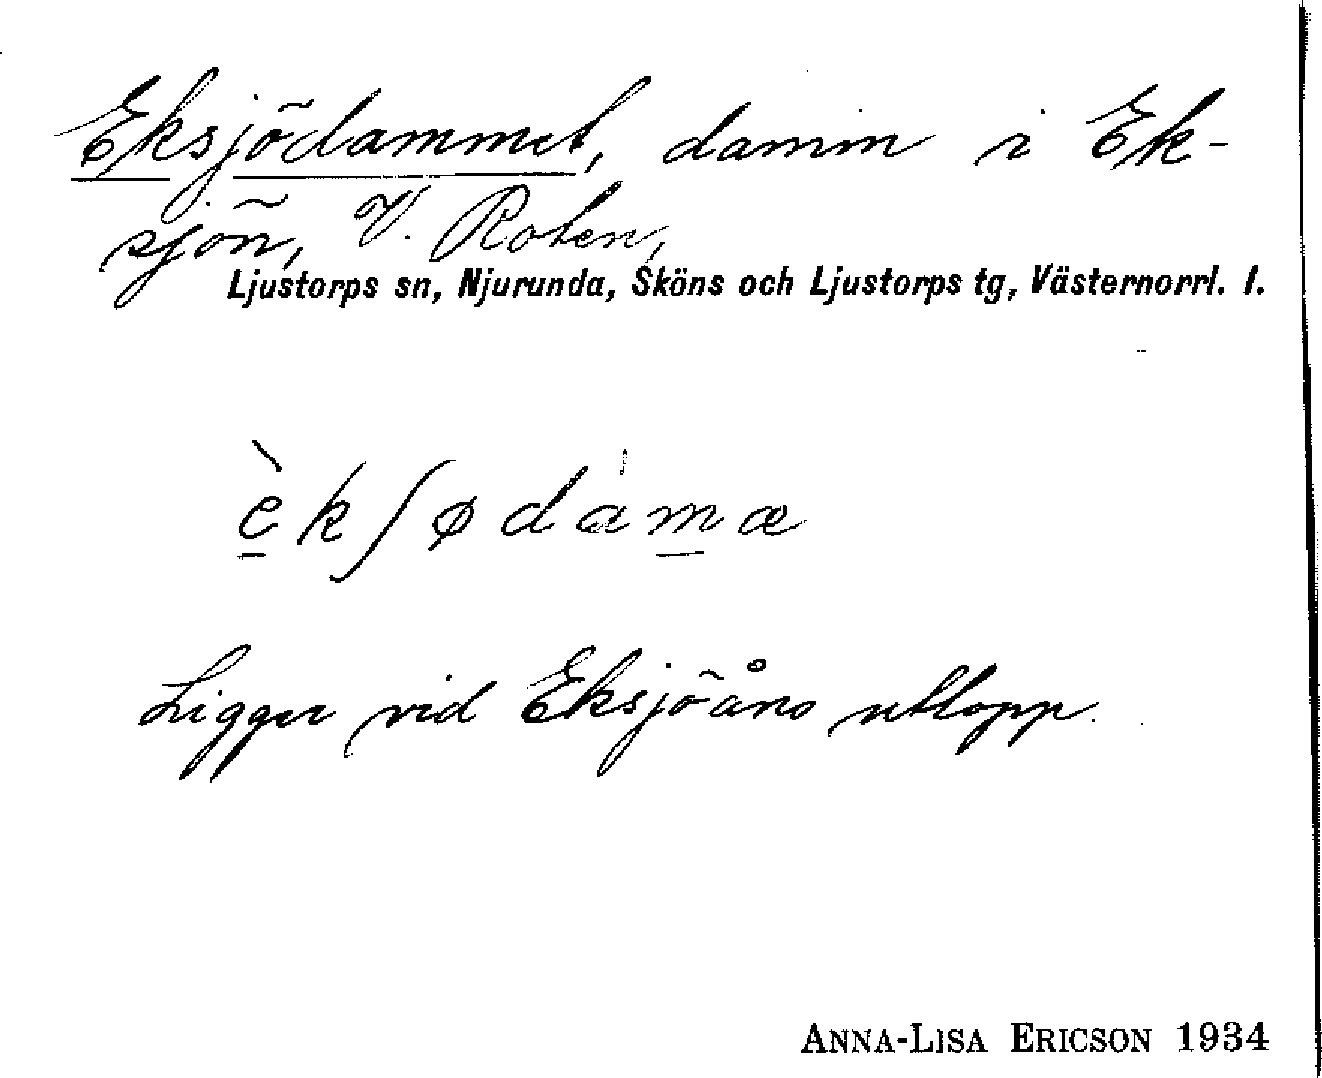 Eksjödammet, damm i Ek-
sjön, V. Roten,
Ljustorps sn, Njurunda, Sköns och Ljustorps tg, Västernorrl. l.
è̱kʃødàm̱æ
Ligger vid Eksjöåns utlopp.
ANNA-LISA ERICSON 1934